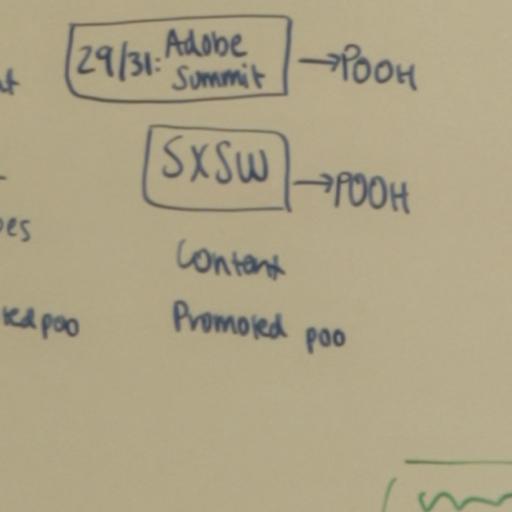 29/31: Adobe
Summit → POOH
SXSW → POOH
Content
Promoted poo